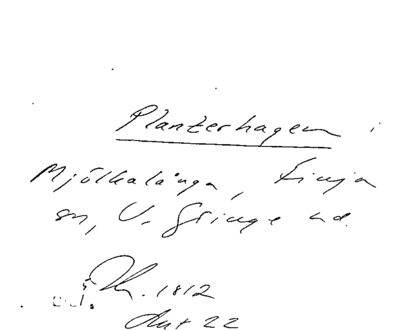 Planterhagen i
Mjölkalånga, Finja
sn, V. Göinge hd.
1812
Akt 22